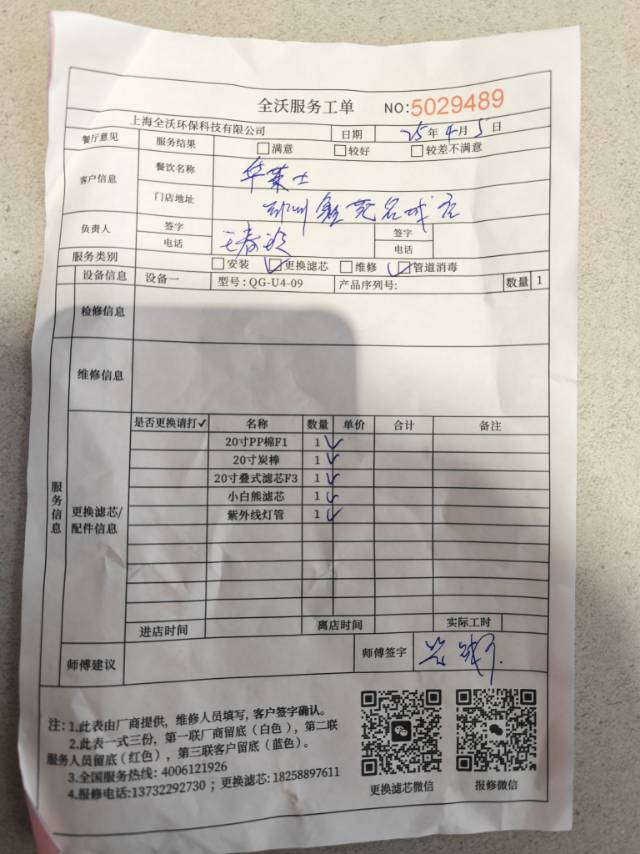 全沃服务工单 NO:5029489
上海全沃环保科技有限公司 日期 25年4月5日
餐厅意见 服务结果 满意 较好 较差不满意
客户信息 餐饮名称 华莱士
门店地址 名城店
负责人 签字 签字
电话 电话
服务类别 安装 更换滤芯 维修 管道消毒
设备信息 设备一 型号: QG-U4-09 产品序列号: 数量 1
检修信息
维修信息
服务信息
更换滤芯/配件信息
是否更换请打✓ 名称 数量 单价 合计 备注
20寸PP棉F1 1 ✓
20寸炭棒 1 ✓
20寸叠式滤芯F3 1 ✓
小白熊滤芯 1 ✓
紫外线灯管 1 ✓
进店时间 离店时间 实际工时
师傅建议 师傅签字
注: 1.此表由厂商提供, 维修人员填写, 客户签字确认。
2.此表一式三份, 第一联厂商留底 (白色), 第二联
服务人员留底(红色), 第三联客户留底 (蓝色)。
3.全国服务热线: 4006121926
4.报修电话:13732292730 ; 更换滤芯: 18258897611
更换滤芯微信 报修微信